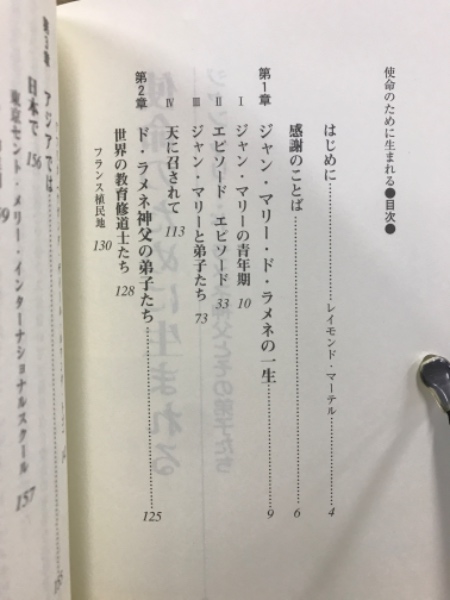 使命のために生まれる●目次●
はじめに……レイモンド・マーテル……4
感謝のことば……6
第1章 ジャン・マリー・ド・ラメネの一生……9
Ⅰ ジャン・マリーの青年期 10
Ⅱ エピソード エピソード 33
Ⅲ ジャン・マリーと弟子たち 73
Ⅳ 天に召されて 113
第2章 ド・ラメネ神父の弟子たち……125
世界の教育修道士たち 128
フランス植民地 130
第3章 アジアでは
日本で 156
東京セント・メリー・インターナショナルスクール 157